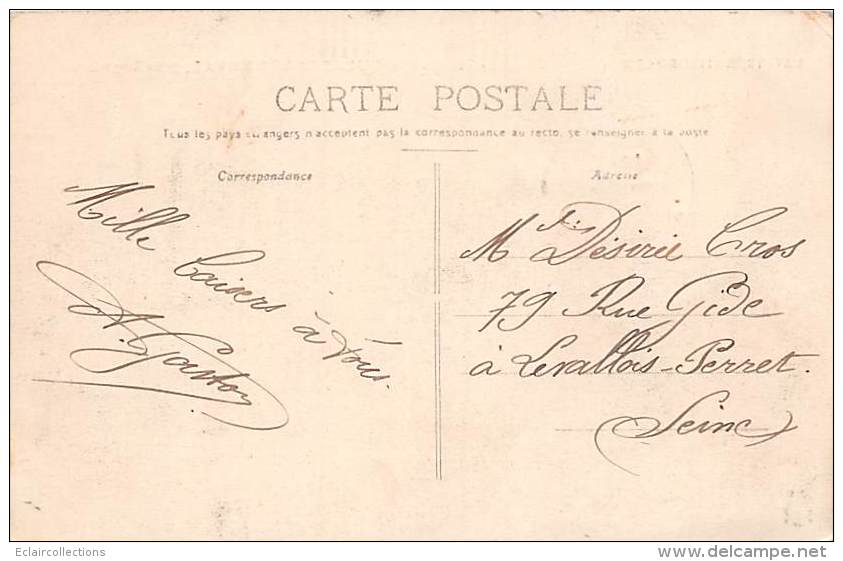 CARTE POSTALE
Tous les pays étrangers n'acceptent pas la correspondance au recto, se renseigner à la poste
Correspondance
Mille baisers à vous.
A. Gaston
Adresse
Désirée Cros
79 Rue Gide
à Levallois-Perret.
(Seine)
Eclaircollections
www.delcampe.net